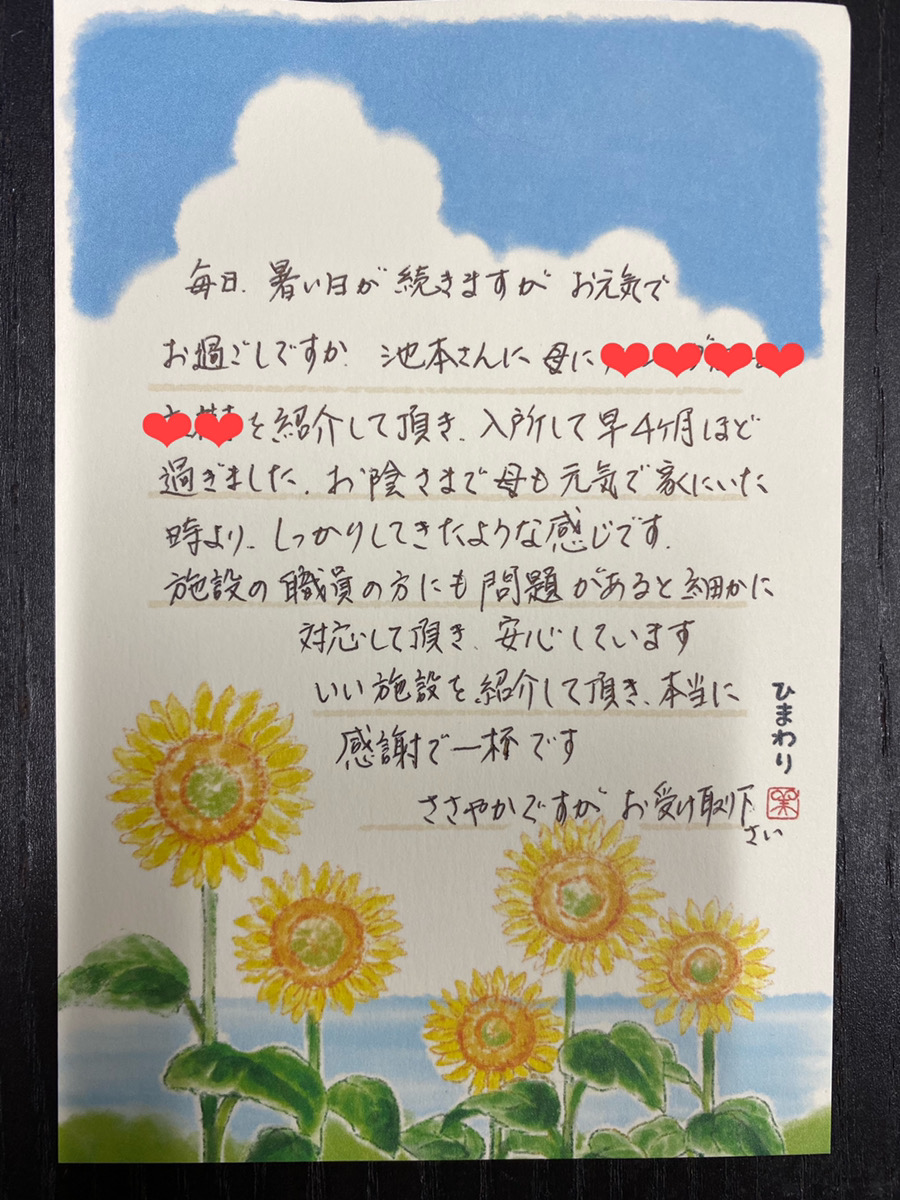 毎日、暑い日が続きますが お元気で
お過ごしですか、池本さんに母に
を紹介して頂き、入所して早4ヶ月ほど
過ぎました、お陰さまで母も元気で家にいた
時より、しっかりしてきたような感じです、
施設の職員の方にも問題があると細かに
対応して頂き、安心しています
いい施設を紹介して頂き、本当に
感謝で一杯です
ささやかですが お受け取り下
さい
ひまわり
笑